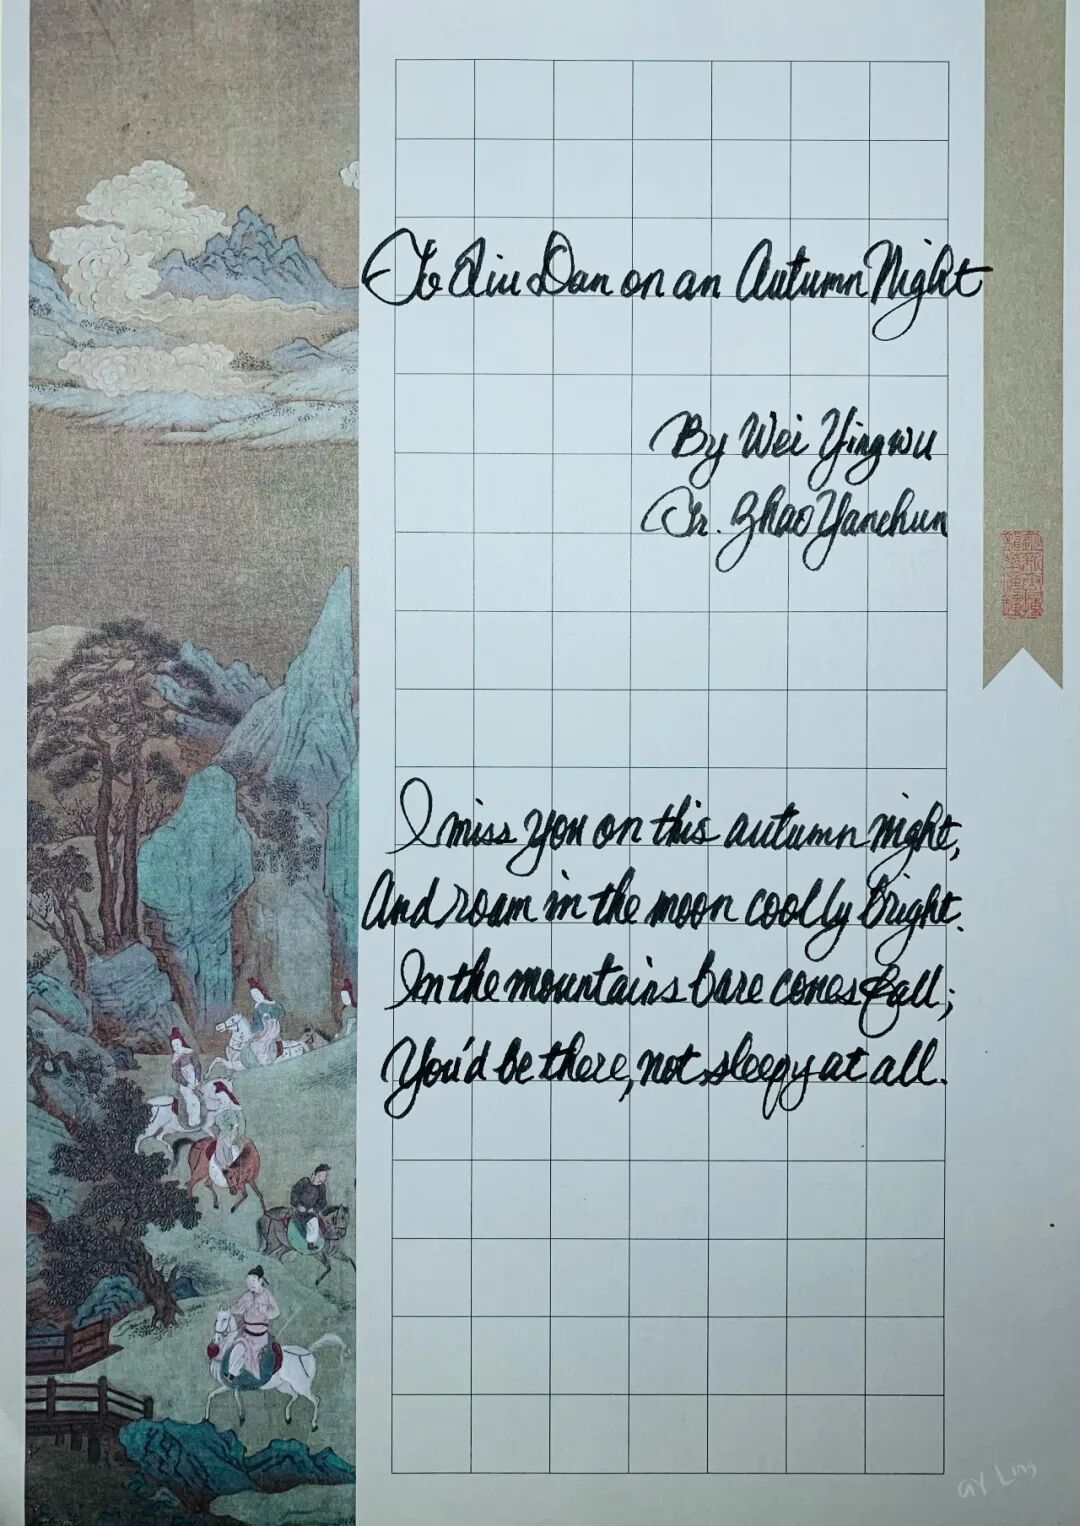 To Qiu Dan on an Autumn Night
By Wei Yingwu
Tr. Zhao Yanchun
I miss you on this autumn night,
And roam in the moon coolly bright.
In the mountains bare cones fall;
You'd be there, not sleepy at all.
GY Ling